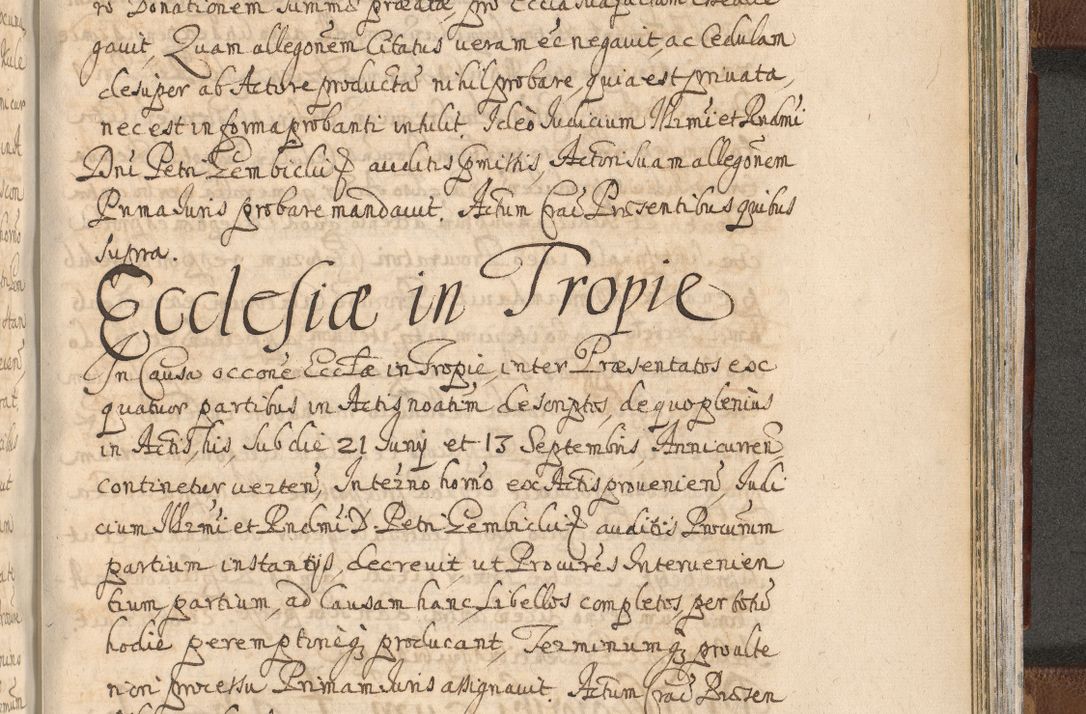 ro Donationem summæ præatæ, pro Eccla sua
gauit, Quam allegonem Citatus veram ee negauit, ac Cedulam
desuper ab Actore producta nihil probare, quia est priuata,
nec est in forma probanti intulit. Ideò Iudicium Illrmi et Rndmi
Dni Petri Gembicki Ep auditis pmissis, Actori suam allegonem
Prima Iuris probare mandauit. Actum Crac Præsentibus quibus
supra.
Ecclesiæ in Tropie
In Causa occone Eccłæ in Tropie, inter Præsentatos ex
quatuor partibus in Actis noatim descriptos, de quo plenius
in Actis, his, sub die 21 Iunij et 13 Septembris, Anni curren
continetur verten, In terno homo ex Actis prouenien, Iudi
cium Illrmi et Rndmi D. Petri Gembicki Ep auditis Procurum
partium instantijs, decreuit, ut Procures Interuenien
tium partium, ad Causam hanc Libellos completos, per totu
hodie peremptorieq; producant, Terminumq; pro ulte
riori processu Primam Iuris assignauit. Actum Crac Præsen